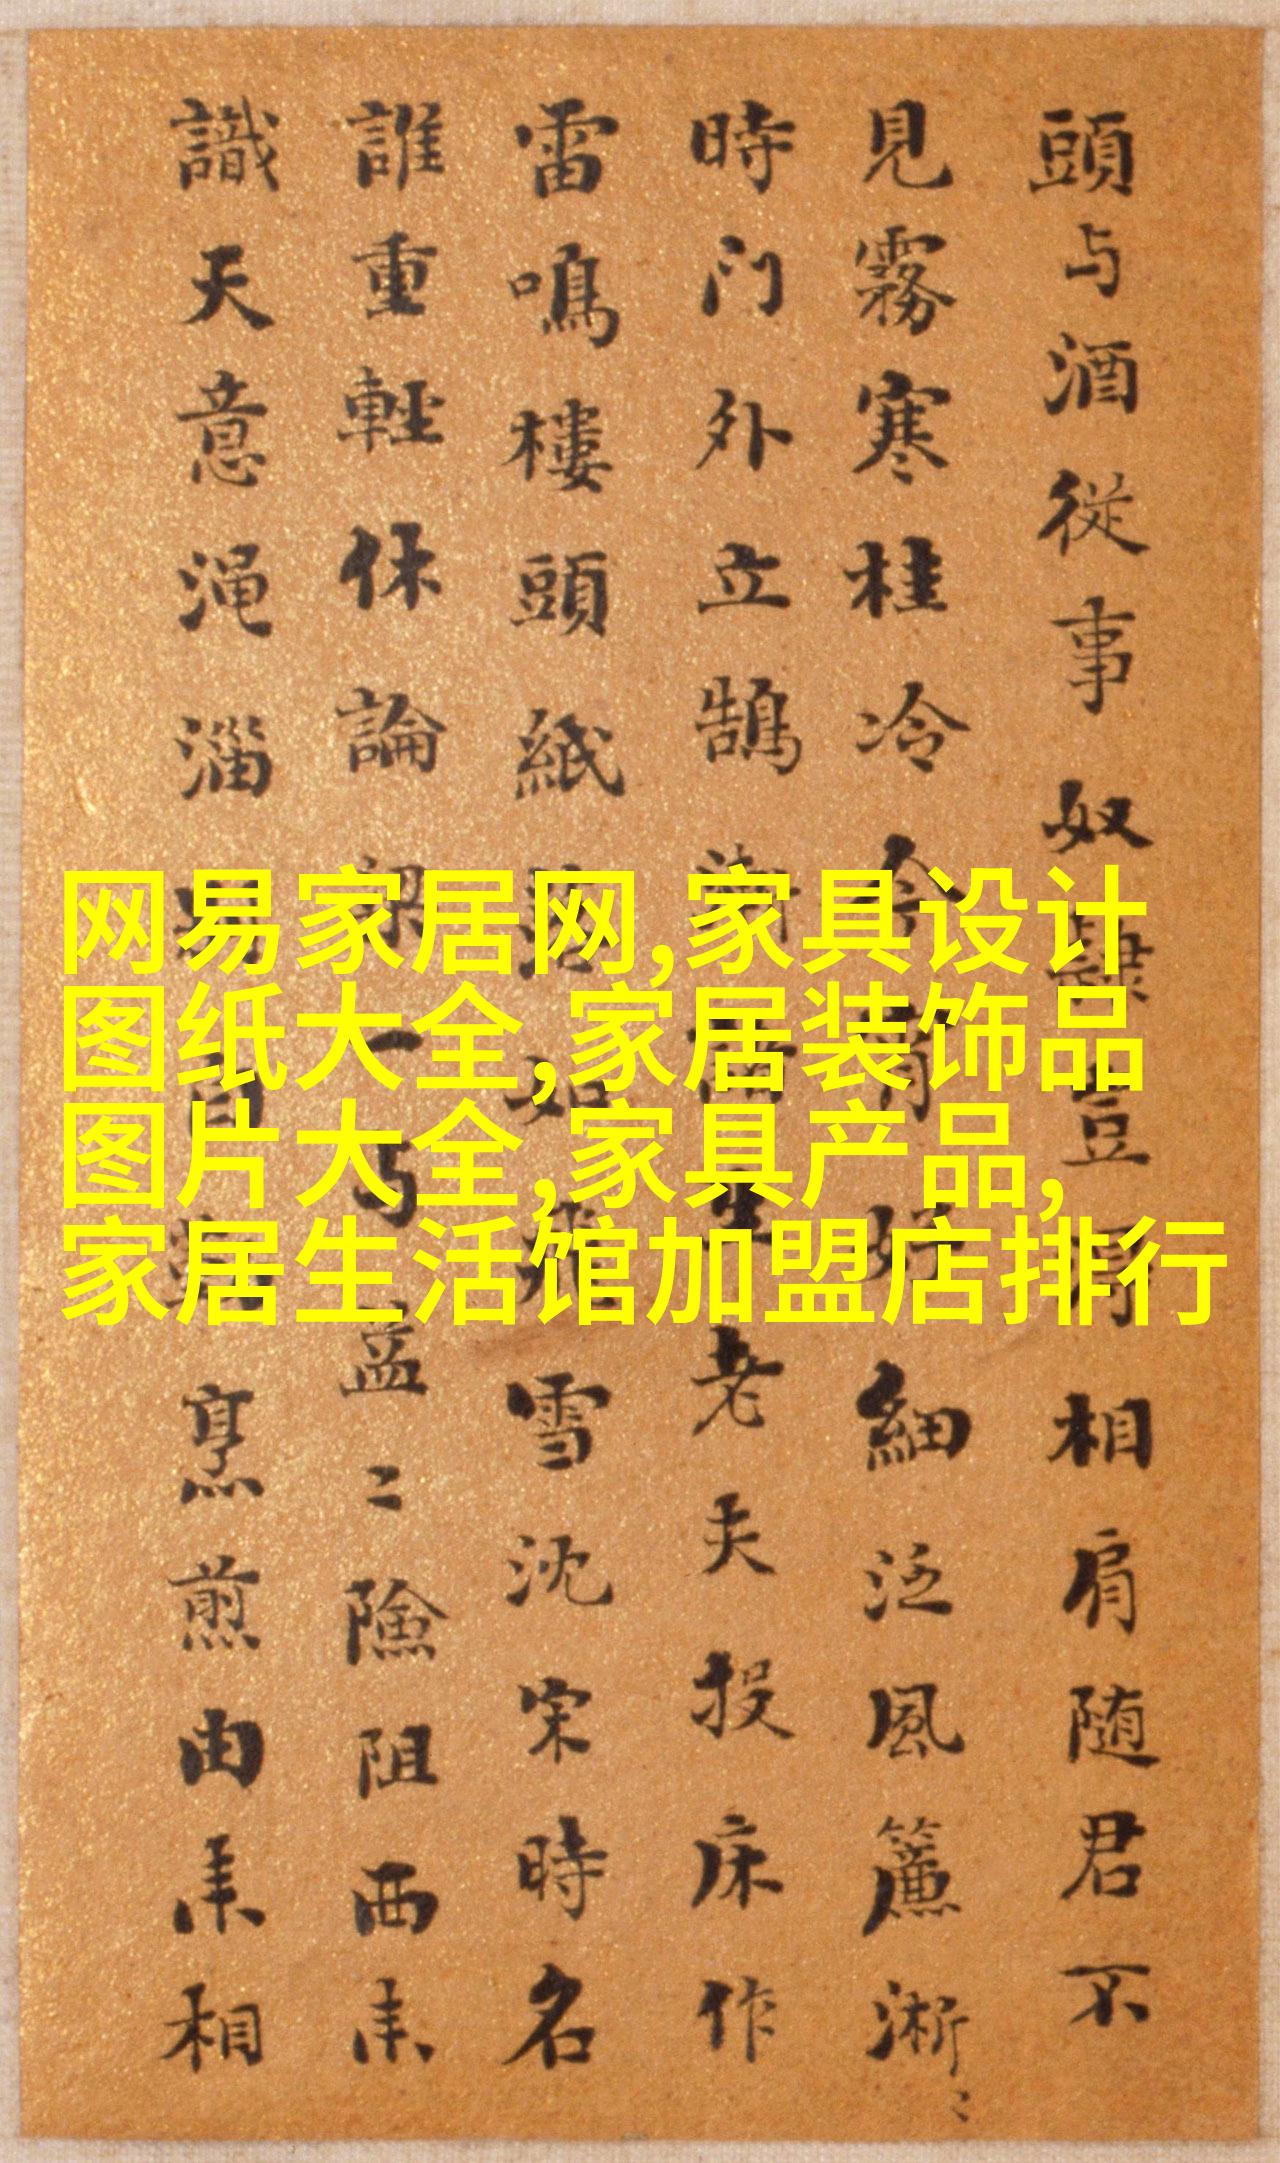 頭与酒従事奴隷豆相肩随君不
見霧寒桂冷細泛風簾淅〻
時门外立鵠老夫投床作
雷鳴樓頭紙落如飛雪沈宋時名
誰重輕休論孟〻險阻西来
識天意渑淄自烹煎由来相
网易家居网,家具设计
图纸大全,家居装饰品
图片大全,家具产品,
家居生活馆加盟店排行